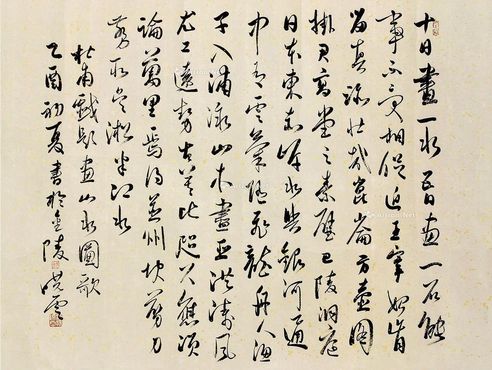 十日畫一水五日畫一石能
事不受相促迫王宰始肯
留真跡壯哉崑崙方壺圖
掛君高堂之素壁巴陵洞庭
日本東赤岸水與銀河通
中有雲氣隨飛龍舟人漁
子入浦溆山木盡亞洪濤風
尤工遠勢古莫比咫尺應須
論萬里焉得并州快剪刀
剪取吳淞半江水
杜甫戲題畫山水圖歌
乙酉初夏書於金陵